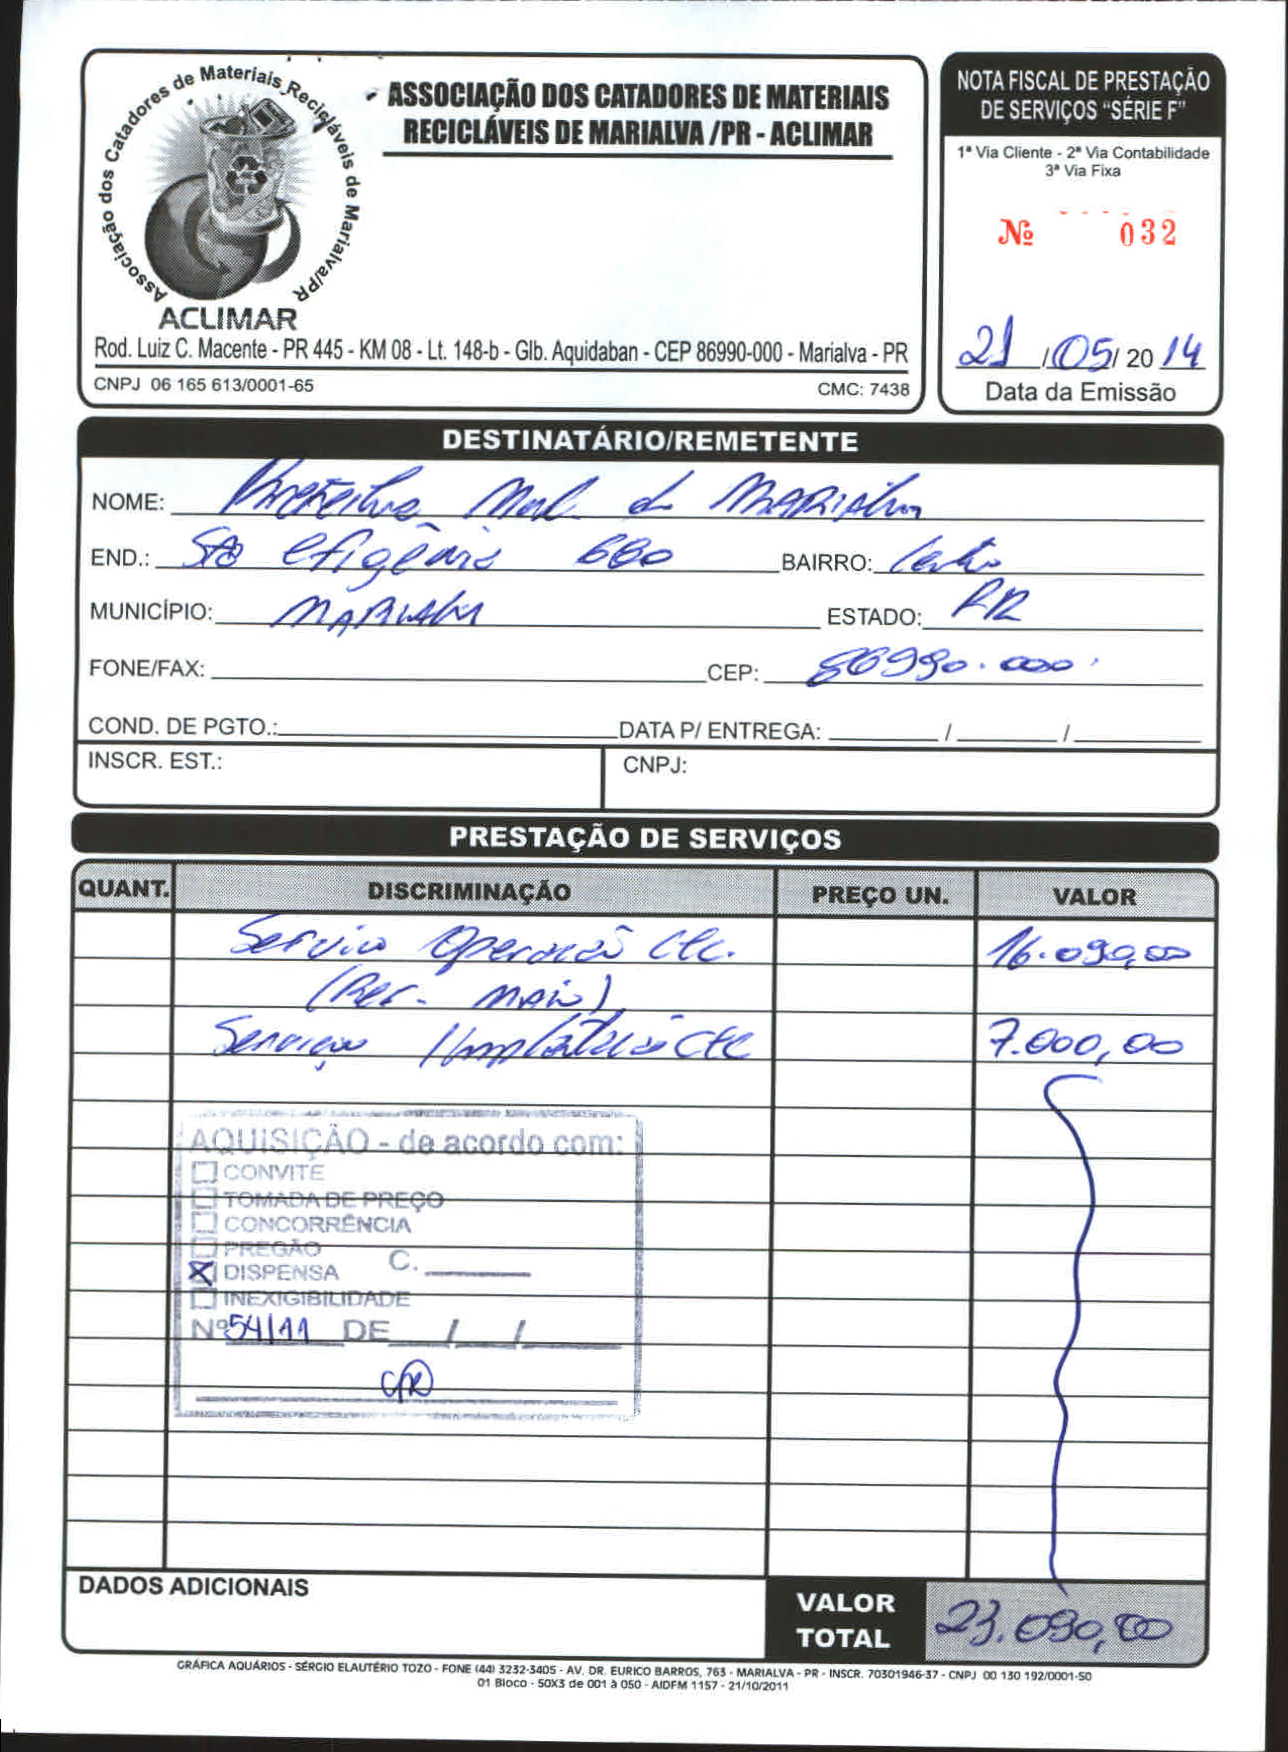 Associação dos Catadores de Materiais Recicláveis de Marialva/PR
ACLIMAR
ASSOCIAÇÃO DOS CATADORES DE MATERIAIS
RECICLÁVEIS DE MARIALVA /PR - ACLIMAR
Rod. Luiz C. Macente - PR 445 - KM 08 - Lt. 148-b - Glb. Aquidaban - CEP 86990-000 - Marialva - PR
CNPJ 06 165 613/0001-65 CMC: 7438
NOTA FISCAL DE PRESTAÇÃO
DE SERVIÇOS "SÉRIE F"
1ª Via Cliente - 2ª Via Contabilidade
3ª Via Fixa
Nº 032
21/05/2014
Data da Emissão
DESTINATÁRIO/REMETENTE
NOME: Prefeitura Mul. de MARIAlva
END.: Sta Efigênia 680 BAIRRO: Centro
MUNICÍPIO: MARIALVA ESTADO: PR
FONE/FAX: CEP: 86990.000
COND. DE PGTO.: DATA P/ ENTREGA: / /
INSCR. EST.: CNPJ:
PRESTAÇÃO DE SERVIÇOS
QUANT. DISCRIMINAÇÃO PREÇO UN. VALOR
Serviço Operação CTC. 16.090,00
(Ref. MAIO)
Serviço Implantação CTC 7.000,00
AQUISIÇÃO - de acordo com:
CONVITE
TOMADA DE PREÇO
CONCORRÊNCIA
PREGÃO
X DISPENSA C.
INEXIGIBILIDADE
Nº 54/11 DE / /
DADOS ADICIONAIS
VALOR
TOTAL 23.090,00
GRÁFICA AQUÁRIOS - SÉRGIO ELAUTÉRIO TOZO - FONE (44) 3232-3405 - AV. DR. EURICO BARROS, 763 - MARIALVA - PR - INSCR. 70301946-37 - CNPJ 00 130 192/0001-50
01 Bloco - 50X3 de 001 à 050 - AIDFM 1157 - 21/10/2011